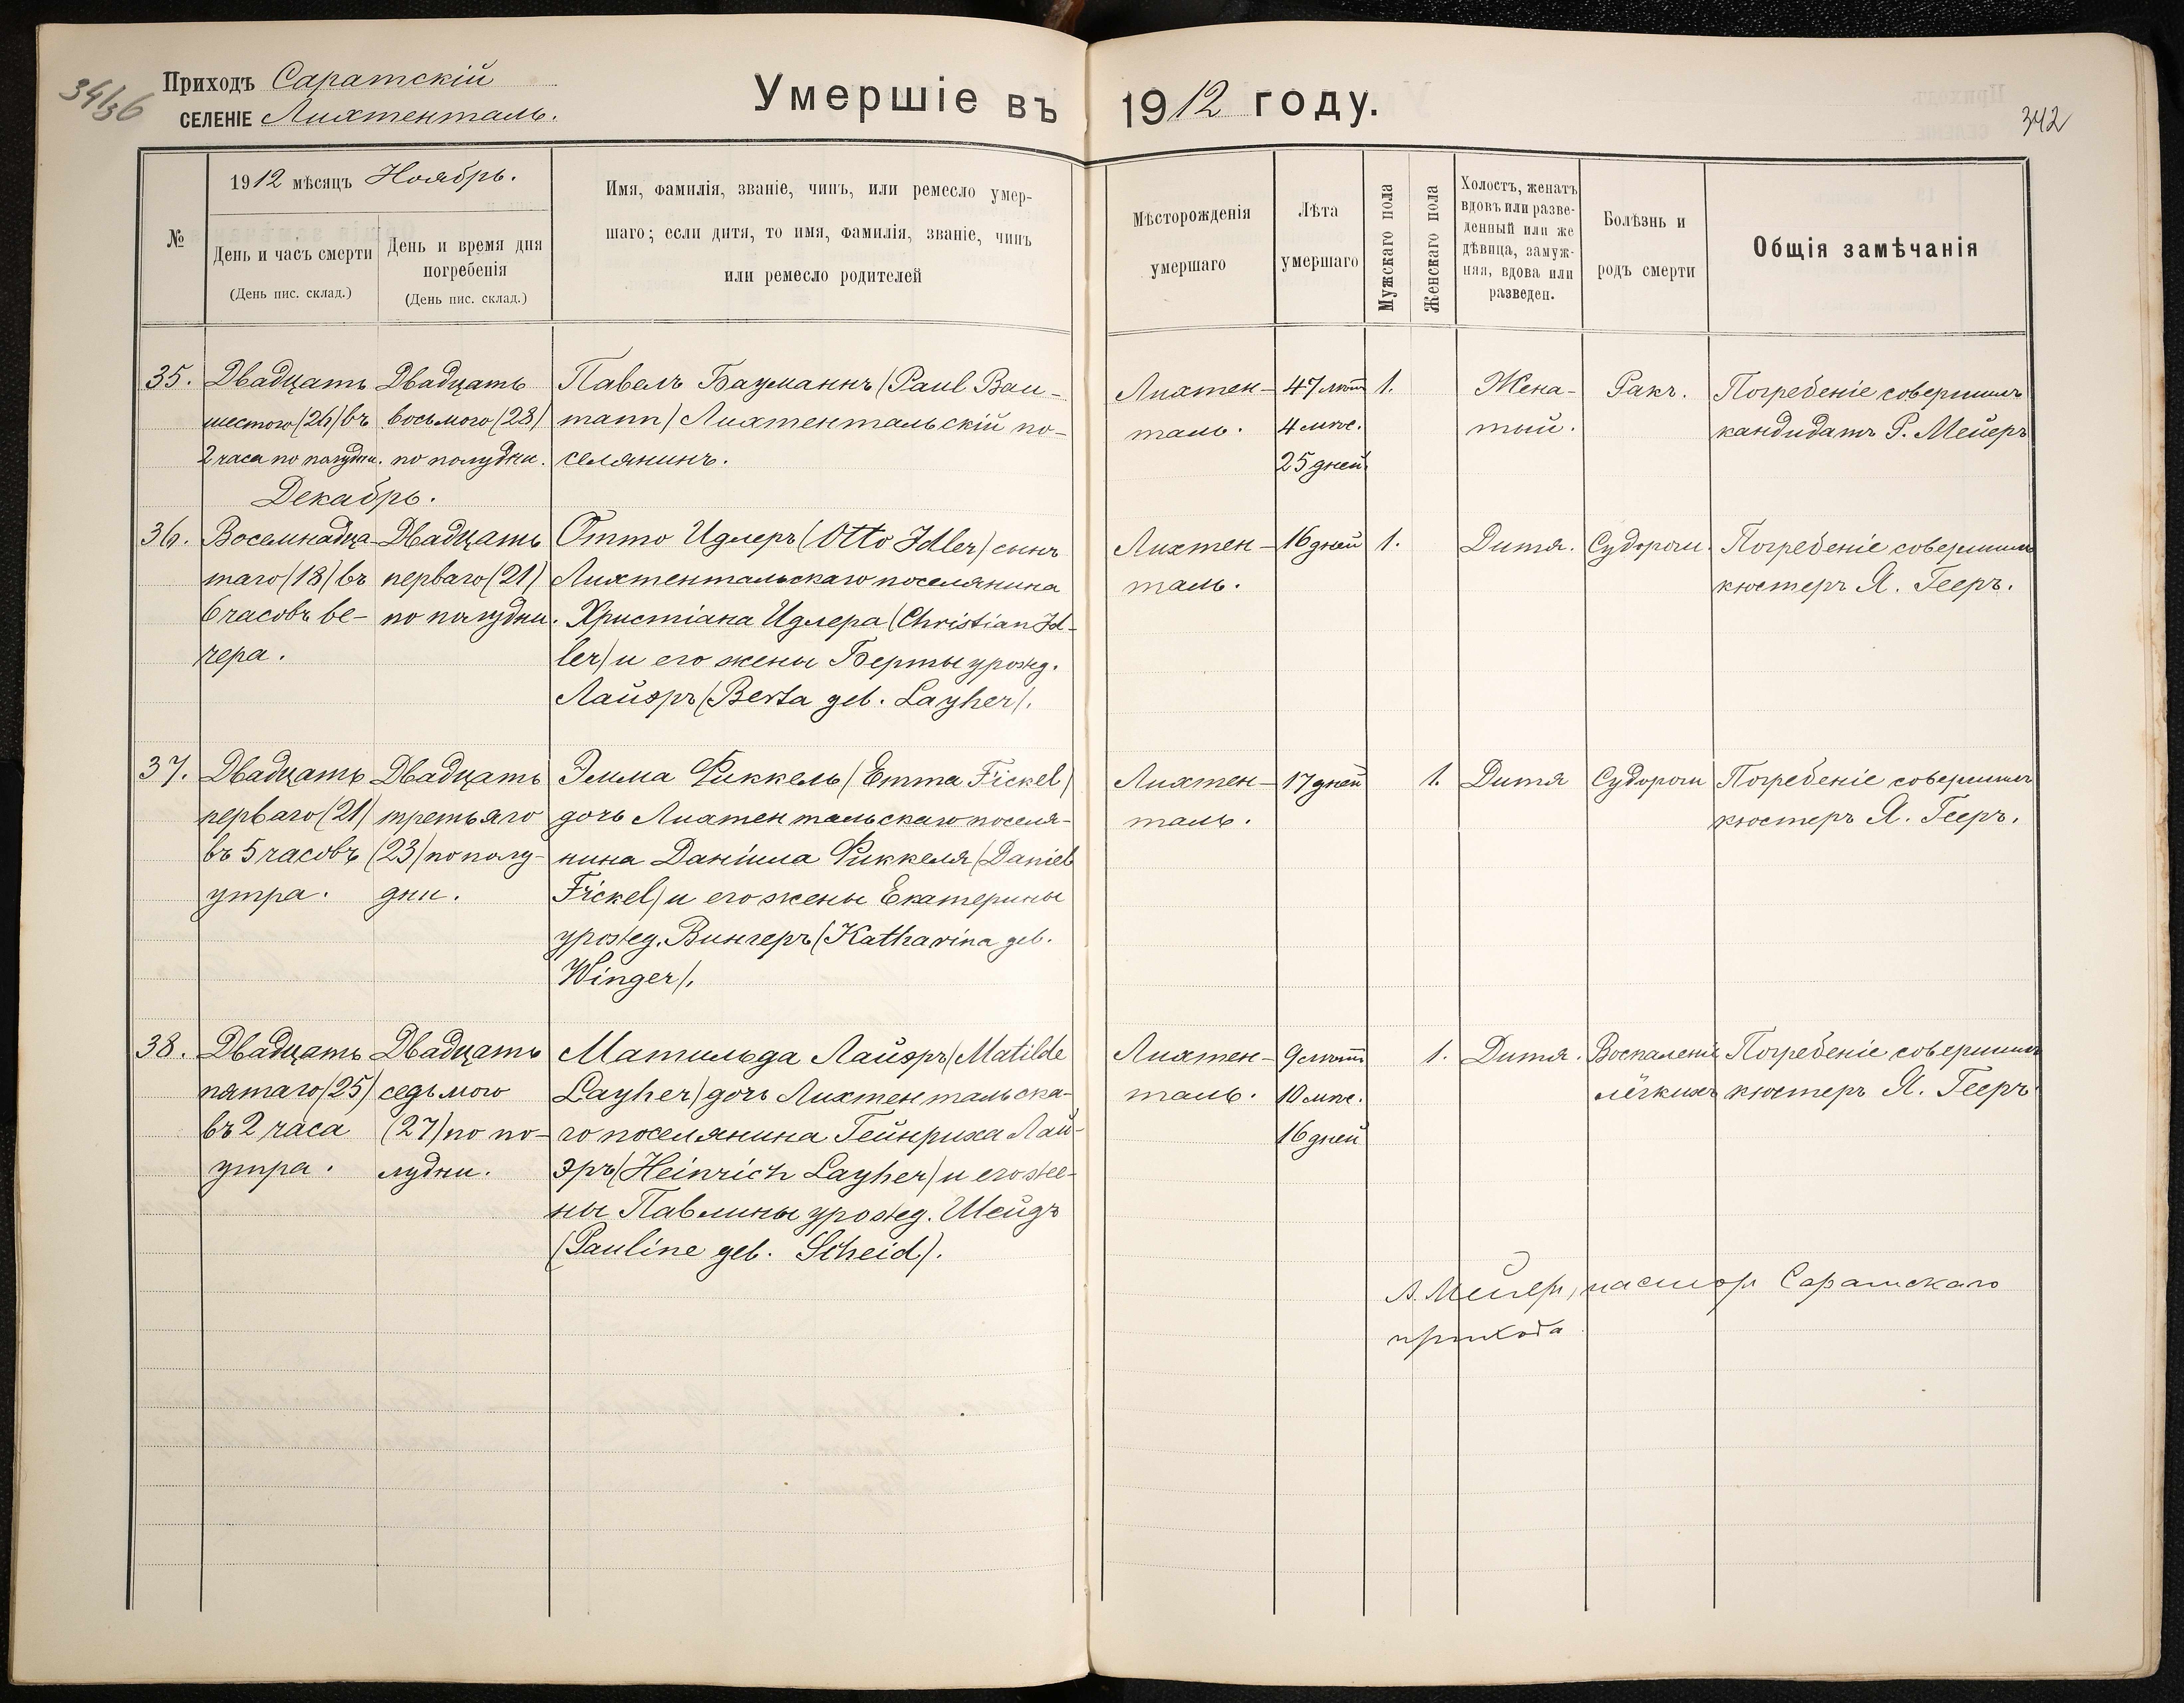 34/36
Приходъ Саратскій
СЕЛЕНІЕ Лихтенталь.
Умершіе въ 1912 году.
342
№
1912 мѣсяцъ Ноябрь.
День и часъ смерти
(День пис. склад.)
День и время дня
погребенія
(День пис. склад.)
Имя, фамилія, званіе, чинъ, или ремесло умер-
шаго; если дитя, то имя, фамилія, званіе, чинъ
или ремесло родителей
Мѣсторожденія
умершаго
Лѣта
умершаго
Мужскаго пола
Женскаго пола
Холостъ, женатъ
вдовъ или разве-
денный или же
дѣвица, замуж-
няя, вдова или
разведен.
Болѣзнь и
родъ смерти
Общія замѣчанія
35.
Двадцать
шестого (26) въ
2 часа по полудни.
Двадцать
восьмого (28)
по полудни.
Павелъ Бауманнъ (Paul Bau-
mann) Лихтентальскій по-
селянинъ.
Лихтен-
таль.
47 лѣтъ
4 мѣс.
25 дней
1.
Жена-
тый.
Ракъ.
Погребеніе совершилъ
кандидатъ Р. Мейеръ
Декабрь.
36.
Восемнадца-
таго (18) въ
6 часовъ ве-
чера.
Двадцать
перваго (21)
по полудни.
Отто Идлеръ (Otto Idler) сынъ
Лихтентальскаго поселянина
Христіана Идлера (Christian Id-
ler) и его жены Берты урожд.
Лайэръ (Berta geb. Layher).
Лихтен-
таль.
16 дней
1.
Дитя.
Судороги.
Погребеніе совершилъ
кюстеръ Я. Гееръ.
37.
Двадцать
перваго (21)
въ 5 часовъ
утра.
Двадцать
третьяго
(23) по полу-
дни.
Эмма Фиккель (Emma Fickel)
дочь Лихтентальскаго поселя-
нина Даніила Фиккеля (Daniel
Fickel) и его жены Екатерины
урожд. Вингеръ (Katharina geb.
Winger).
Лихтен-
таль.
17 дней
1.
Дитя
Судороги
Погребеніе совершилъ
кюстеръ Я. Гееръ.
38.
Двадцать
пятаго (25)
въ 2 часа
утра.
Двадцать
седьмого
(27) по по-
лудни.
Матильда Лайэръ (Matilde
Layher) дочь Лихтентальска-
го поселянина Гейнриха Лай-
эръ (Heinrich Layher) и его же-
ны Павлины урожд. Шейдъ
(Pauline geb. Scheid).
Лихтен-
таль.
9 лѣтъ
10 мѣс.
16 дней
1.
Дитя.
Воспаленіе
лёгкихъ
Погребеніе совершилъ
кюстеръ Я. Гееръ
А. Мейеръ, пасторъ Саратскаго
прихода